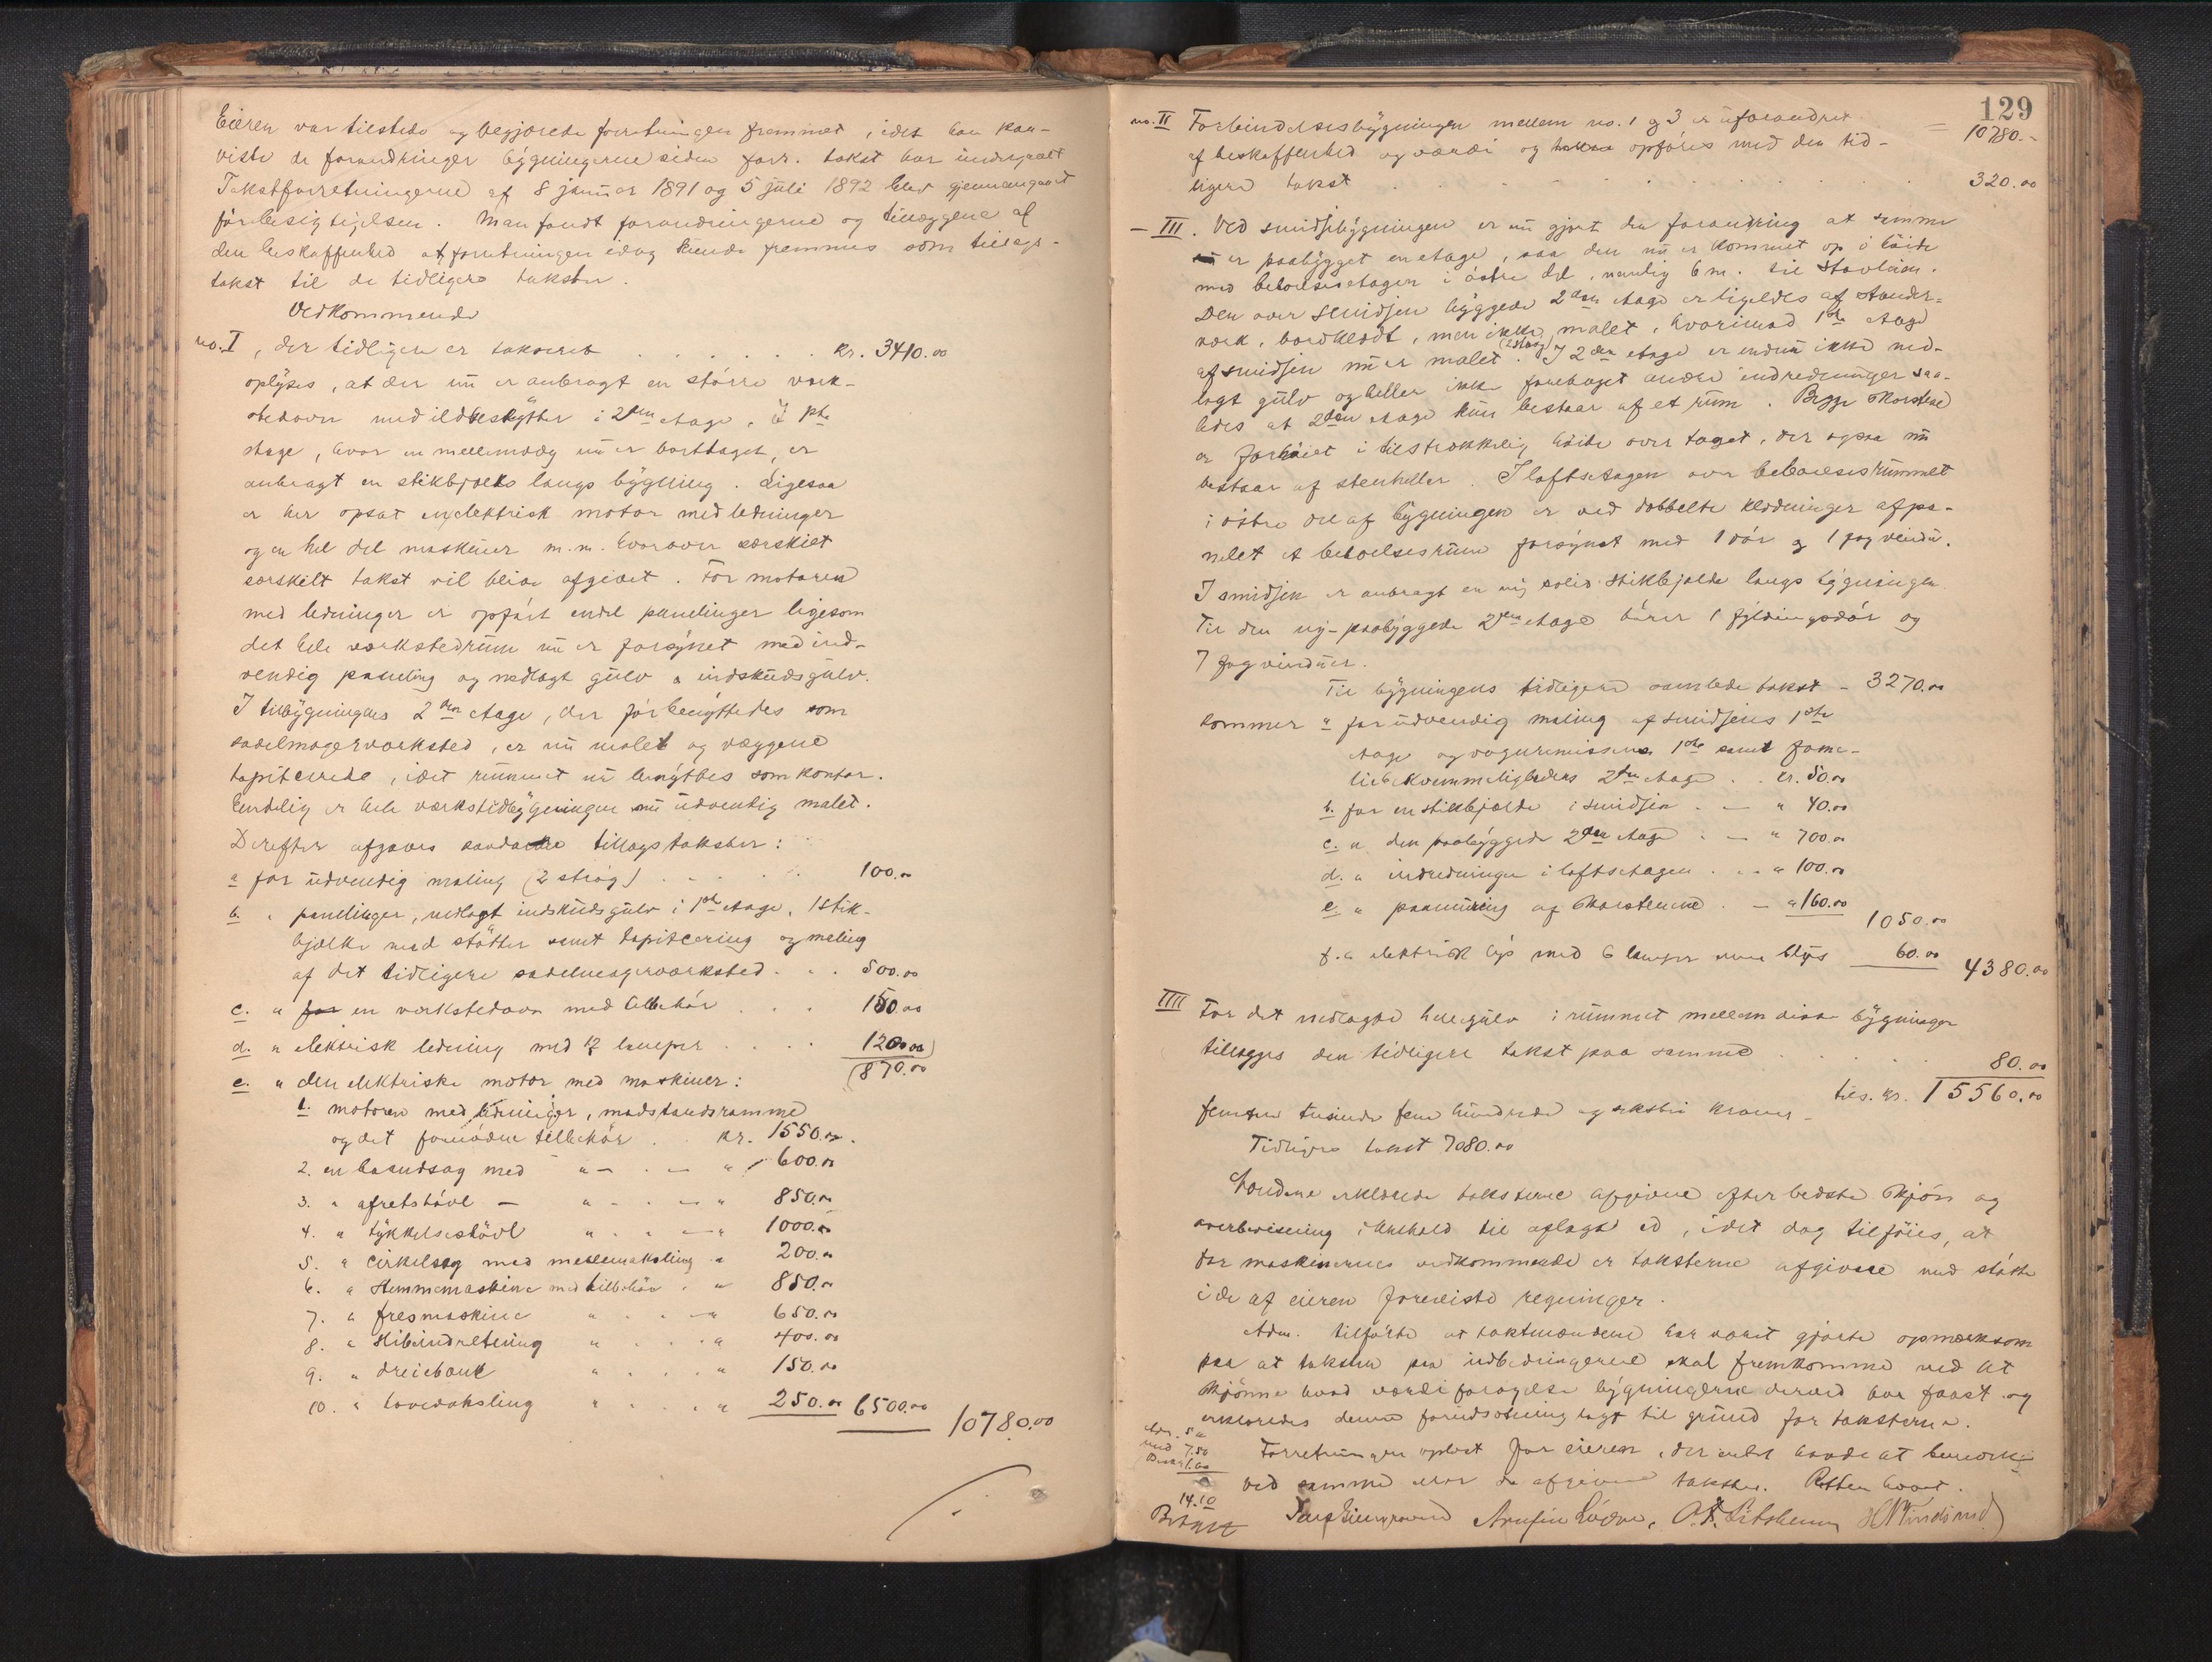 Eieren var tilstede og begjærede forretningen fremmet, idet han paa-
viste de forandringer bygningerne siden forr. takst har undergaaet
Takstforretningerne af 8 januar 1891 og 5 juli 1892 blev gjennemgaaet
før besigtigelsen. Man fandt forandringerne og tillæggene af
den beskaffenhed at forretningen idag kunde fremmes som tillægs-
takst til de tidligere takster.
Vedkommende
no. I, der tidligere er takseret . . . . . . kr. 3410.00
oplyses, at der nu er anbragt en større værk-
stedovn med ildbeskytter i 2den etage. I 1ste
etage, hvor en mellemvæg nu er borttaget, er
anbragt en stikbjælke langs bygning. Ligesaa
er her opsat en elektrisk motor med ledninger
og en hel del maskiner m.m. hvorover særskilt
særskilt takst vil blive afgivet. For motoren
med ledninger er opført endel panelinger ligesom
det hele værkstedrum nu er forsynet med ind-
vendig paneling og nedlagt gulv a indskudsgulv.
I tilbygningens 2den etage, der før benyttedes som
sadelmagerværksted, er nu malet og væggene
tapiterede, idet rummet nu benyttes som kontor.
Endelig er hele værkstedbygningen nu udvendig malet.
Derefter afgaves saadanne tillægstakster:
a for udvendig maling (2 strøg) . . . . . 100.00
b. " panelinger, nedlagt indskudsgulv i 1ste etage, 1 stik-
bjælke med støtter samt tapitcering og maling
af det tidligere sadelmagerværksted . . . 500.00
c. " for en værkstedovn med tilbehør . . . 150.00
d. " elektrisk ledning med 12 lamper . . . . 120.00
e. " den elektriske motor med maskiner: (870.00
1. motoren med ledninger, modstandsramme
og det fornødne tilbehør . . kr. 1550.00.
2. en baandsag med " — . — " 600.00
3. " afretshøvl — " . . — " 850.00
4. " tykkelseshøvl " . . — " 1000.00
5. " cirkelsag med mellemaksling " 200.00
6. " Stemmemaskine med tilbehør . " 850.00
7. " fresmaskine " . . — " 650.00
8. " Slibeindretning " . . . " 400.00
9. " dreiebænk " . . . " 150.00
10. " hovedaksling " . . . " 250.00 6500.00
10780.00
129
no. II Forbindelsesbygningen mellem no. 1 og 3 er uforandret = 10780.-
af beskaffenhed og værdi og opføres med den tid-
ligere takst . . . . . . . . . . 320.00
— III. Ved smidjebygningen er nu gjort den forandring at samme
er paabygget en etage, saa den nu er kommet op i høide
med beboelsesetagen i østre del, nemlig 6 m. til stavlæin.
Den over smidjen byggede 2den etage er ligeledes af stænder-
værk, bordklædt, men ikke malet, hvorimod 1ste etage
af smidjen nu er malet. I 2den etage er endnu ikke ned-
lagt gulv og heller ikke foretaget andre indredninger saa-
ledes at 2den etage kun bestaar af et rum. Begge skorstene
er forhøiet i tilstrækkelig høide over taget, der ogsaa nu
bestaar af stenheller. I loftsetagen over beboelsesrummet
i østre del af bygningen er ved dobbelte klædninger afpa-
nelet et beboelsesrum forsynet med 1 dør og 1 fag vindu.
I smidjen er anbragt en ny solid stikbjelde langs bygningen
Til den ny-paabyggede 2den etage hører 1 fyldingsdør og
7 fag vinduer.
Til bygningens tidligere samlede takst - 3270.00
kommer a for udvendig maling af smidjens 1ste
etage og vognremissens 1ste samt fami-
liebekvemmelighedens 2den etage . . kr. 50.00
b. for en stikbjælde i smidjen . — " 40.00
c. " den paabyggede 2den etage . — " 700.00
d. " indredninger i loftsetagen . . . " 100.00
e. " paamuring af skorstenene . — " 160.00
1050.00
f. " elektrisk lys med 6 lamper 60.00 4380.00
IIII For det nedlagte hellegulv i rummet mellem disse bygninger
tillægges den tidligere takst paa samme . . . . . 80.00
tils. kr. 15560.00
femten tusinde fem hundrede og seksti kroner -
Tidligere takst 7080.00
Mændene erklærede taksterne afgivne efter bedste skjøn og
overbevisning i henhold til aflagt ed, idet dog tilføies, at
for maskinernes vedkommende er taksterne afgivne med støtte
i de af eieren foreviste regninger.
Adm. tilførte at takstmændene har været gjorte opmærksom
paa at taksten paa indbedringerne skal fremkomme ved at
skjønne hvad værdiforøgelse bygningerne derved har faaet og
erklæredes denne forudsætning lagt til grund for taksterne.
Forretningen oplæst for eieren, der intet havde at bemærke
ved samme eller de afgivne takster. Retten hævet.
7.50
14.10
Betalt